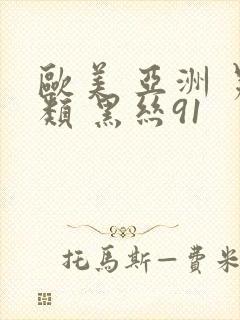 歐美 亞洲
類 黑絲91
托馬斯—費米